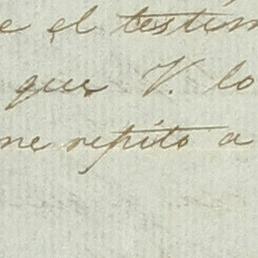 e el testim
que V. lo
me repito a